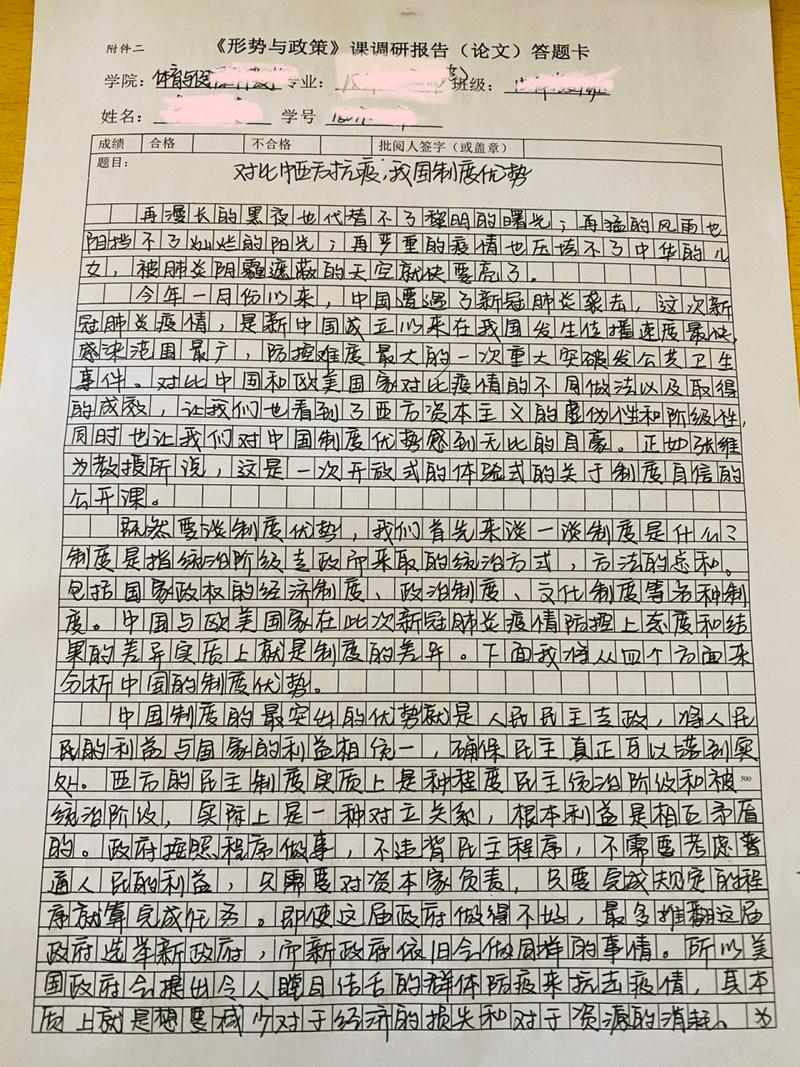 附件二
《形势与政策》课调研报告（论文）答题卡
学院：体育与 专业： 班级：
姓名： 学号
成绩 合格 不合格 批阅人签字（或盖章）
题目：
对比中西方抗疫，我国制度优势
再漫长的黑夜也代替不了黎明的曙光；再猛的风雨也
阻挡不了灿烂的阳光；再严重的疫情也压垮不了中华的儿
女，被肺炎阴霾遮蔽的天空就快要亮了。
今年一月份以来，中国遭遇了新冠肺炎袭击，这次新
冠肺炎疫情，是新中国成立以来在我国发生位播速度最快，
感染范围最广，防控难度最大的一次重大突破发公共卫生
事件。对比中国和欧美国家对比疫情的不同做法以及取得
的成效，让我们也看到了西方资本主义的虚伪性和阶级性，
同时也让我们对中国制度优势感到无比的自豪。正如张维
为教授所说，这是一次开放式的体验式的关于制度自信的
公开课。
既然要谈制度优势，我们首先来谈一谈制度是什么？
制度是指统治阶级专政而采取的统治方式，方法的总和。
包括国家政权的经济制度、政治制度、文化制度等各种制
度。中国与欧美国家在此次新冠肺炎疫情防控上态度和结
果的差异实质上就是制度的差异。下面我将从四个方面来
分析中国的制度优势。
中国制度的最突出的优势就是人民民主专政，将人民
民的利益与国家的利益相统一，确保民主真正可以落到实
处。西方的民主制度实质上是种程度民主统治阶级和被
500
统治阶级，实际上是一种对立关系，根本利益是相互矛盾
的。政府按照程序做事，不违背民主程序，不需要考虑普
通人民的利益，只需要对资本家负责，只要完成规定的程
序就算完成任务。即使这届政府做得不好，最多推翻这届
政府选举新政府，而新政府依旧会做同样的事情。所以美
国政府会提出令人瞠目结舌的群体防疫来抗击疫情，其本
质上就是想要减少对于经济的损失和对于资源的消耗。为